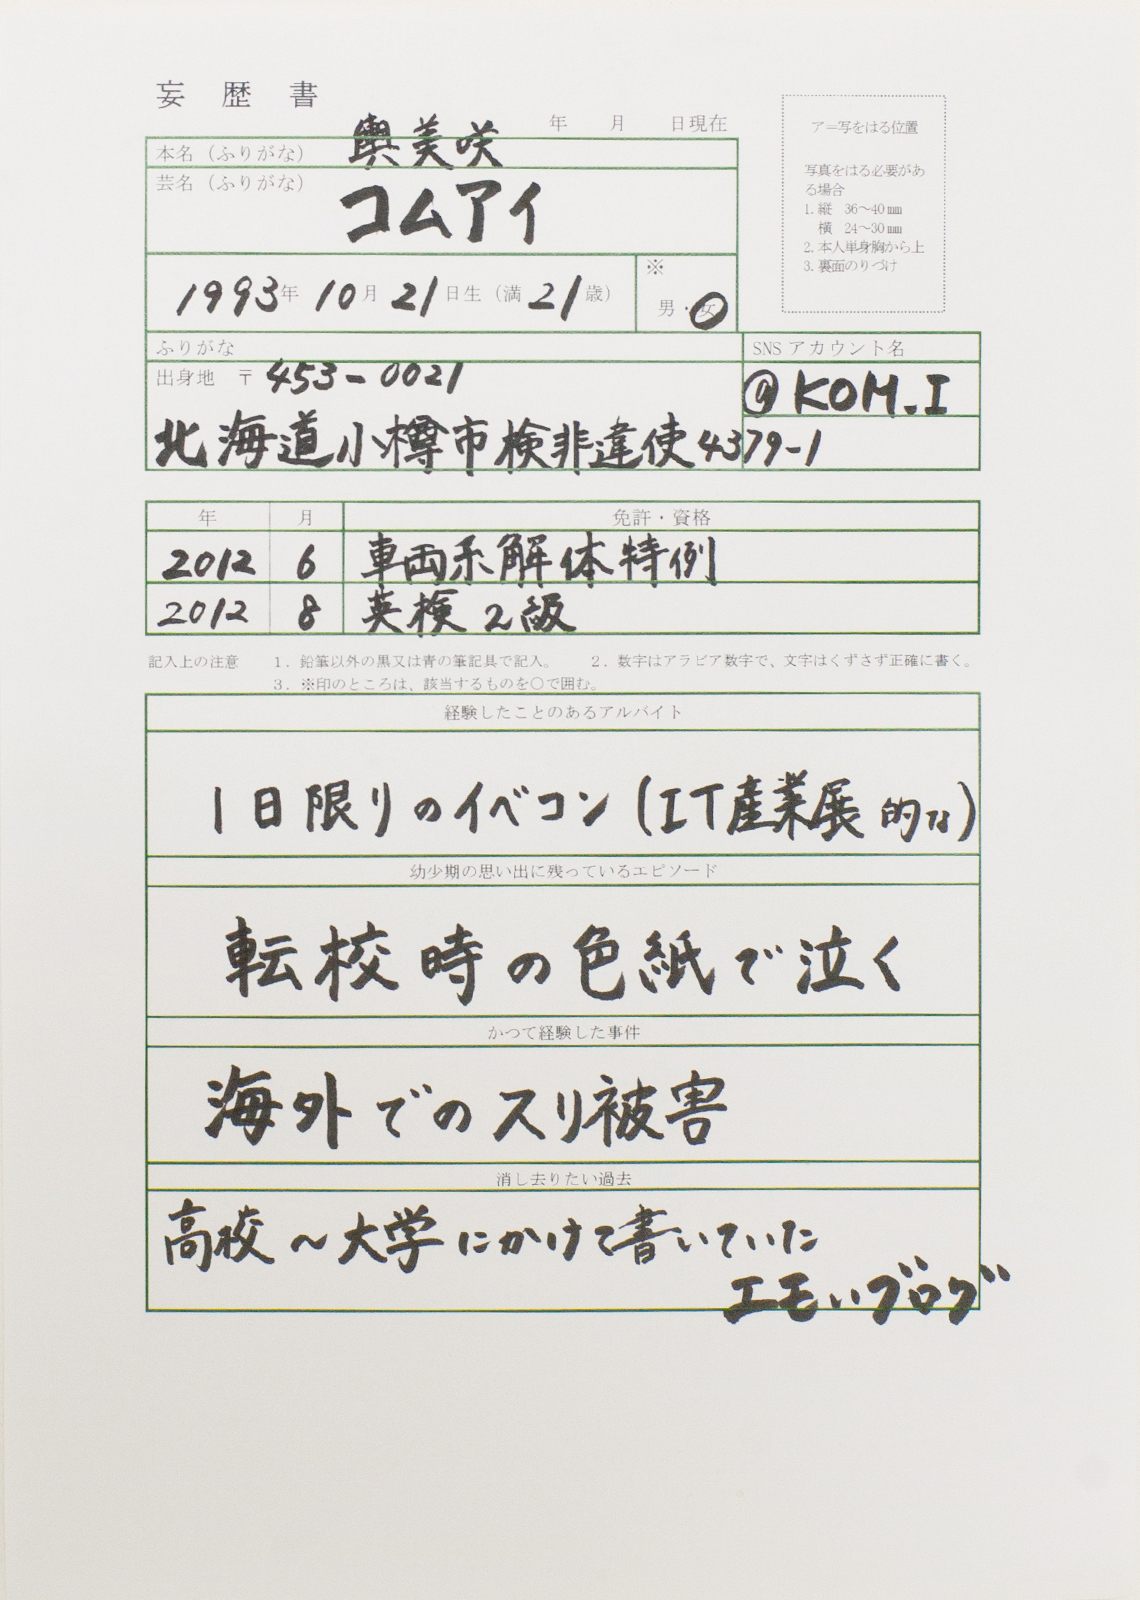 妄歴書
年 月 日現在
本名（ふりがな） 輿美咲
芸名（ふりがな） コムアイ
1993年 10月 21日生（満 21歳）
※
男・女
ア＝写をはる位置
写真をはる必要があ
る場合
1. 縦 36～40㎜
横 24～30㎜
2. 本人単身胸から上
3. 裏面のりづけ
ふりがな
出身地 〒 453-0021
北海道小樽市検非違使4379-1
SNS アカウント名
@KOM_I
年 月 免許・資格
2012 6 車両系解体特例
2012 8 英検2級
記入上の注意 1．鉛筆以外の黒又は青の筆記具で記入。 2．数字はアラビア数字で、文字はくずさず正確に書く。
3．※印のところは、該当するものを○で囲む。
経験したことのあるアルバイト
1日限りのイベコン(IT産業展的な)
幼少期の思い出に残っているエピソード
転校時の色紙で泣く
かつて経験した事件
海外でのスリ被害
消し去りたい過去
高校～大学にかけて書いていた
エモいブログ